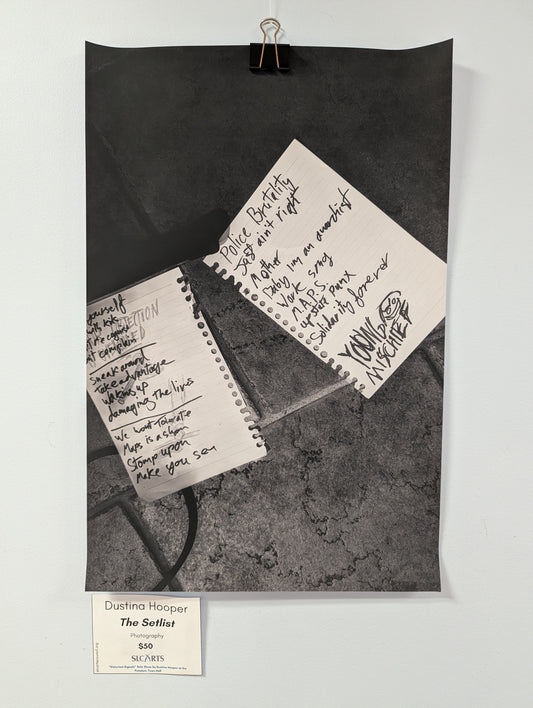 Police Brutality
Just ain't right
Mother
Baby im an anarchist
Work song
M.A.P.S
upstate punx
Solidarity forever
YOUNG
MISCHIEF
yourself
at complain
Sneak around
take advantage
waking up
damaging the lives
We wont tolerate
Maps is a sham
Stomp upon
Make you say
Dustina Hooper
The Setlist
Photography
$50
SLCARTS